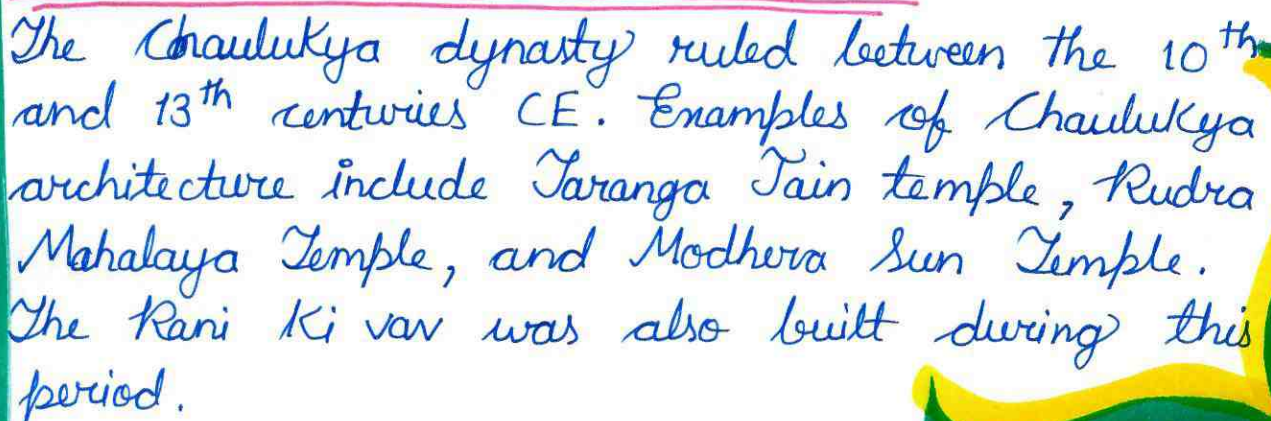 The Chaulukya dynasty ruled between the 10th
and 13th centuries CE. Examples of Chaulukya
architecture include Taranga Jain temple, Rudra
Mahalaya Temple, and Modhera Sun Temple.
The Rani Ki vav was also built during this
period.